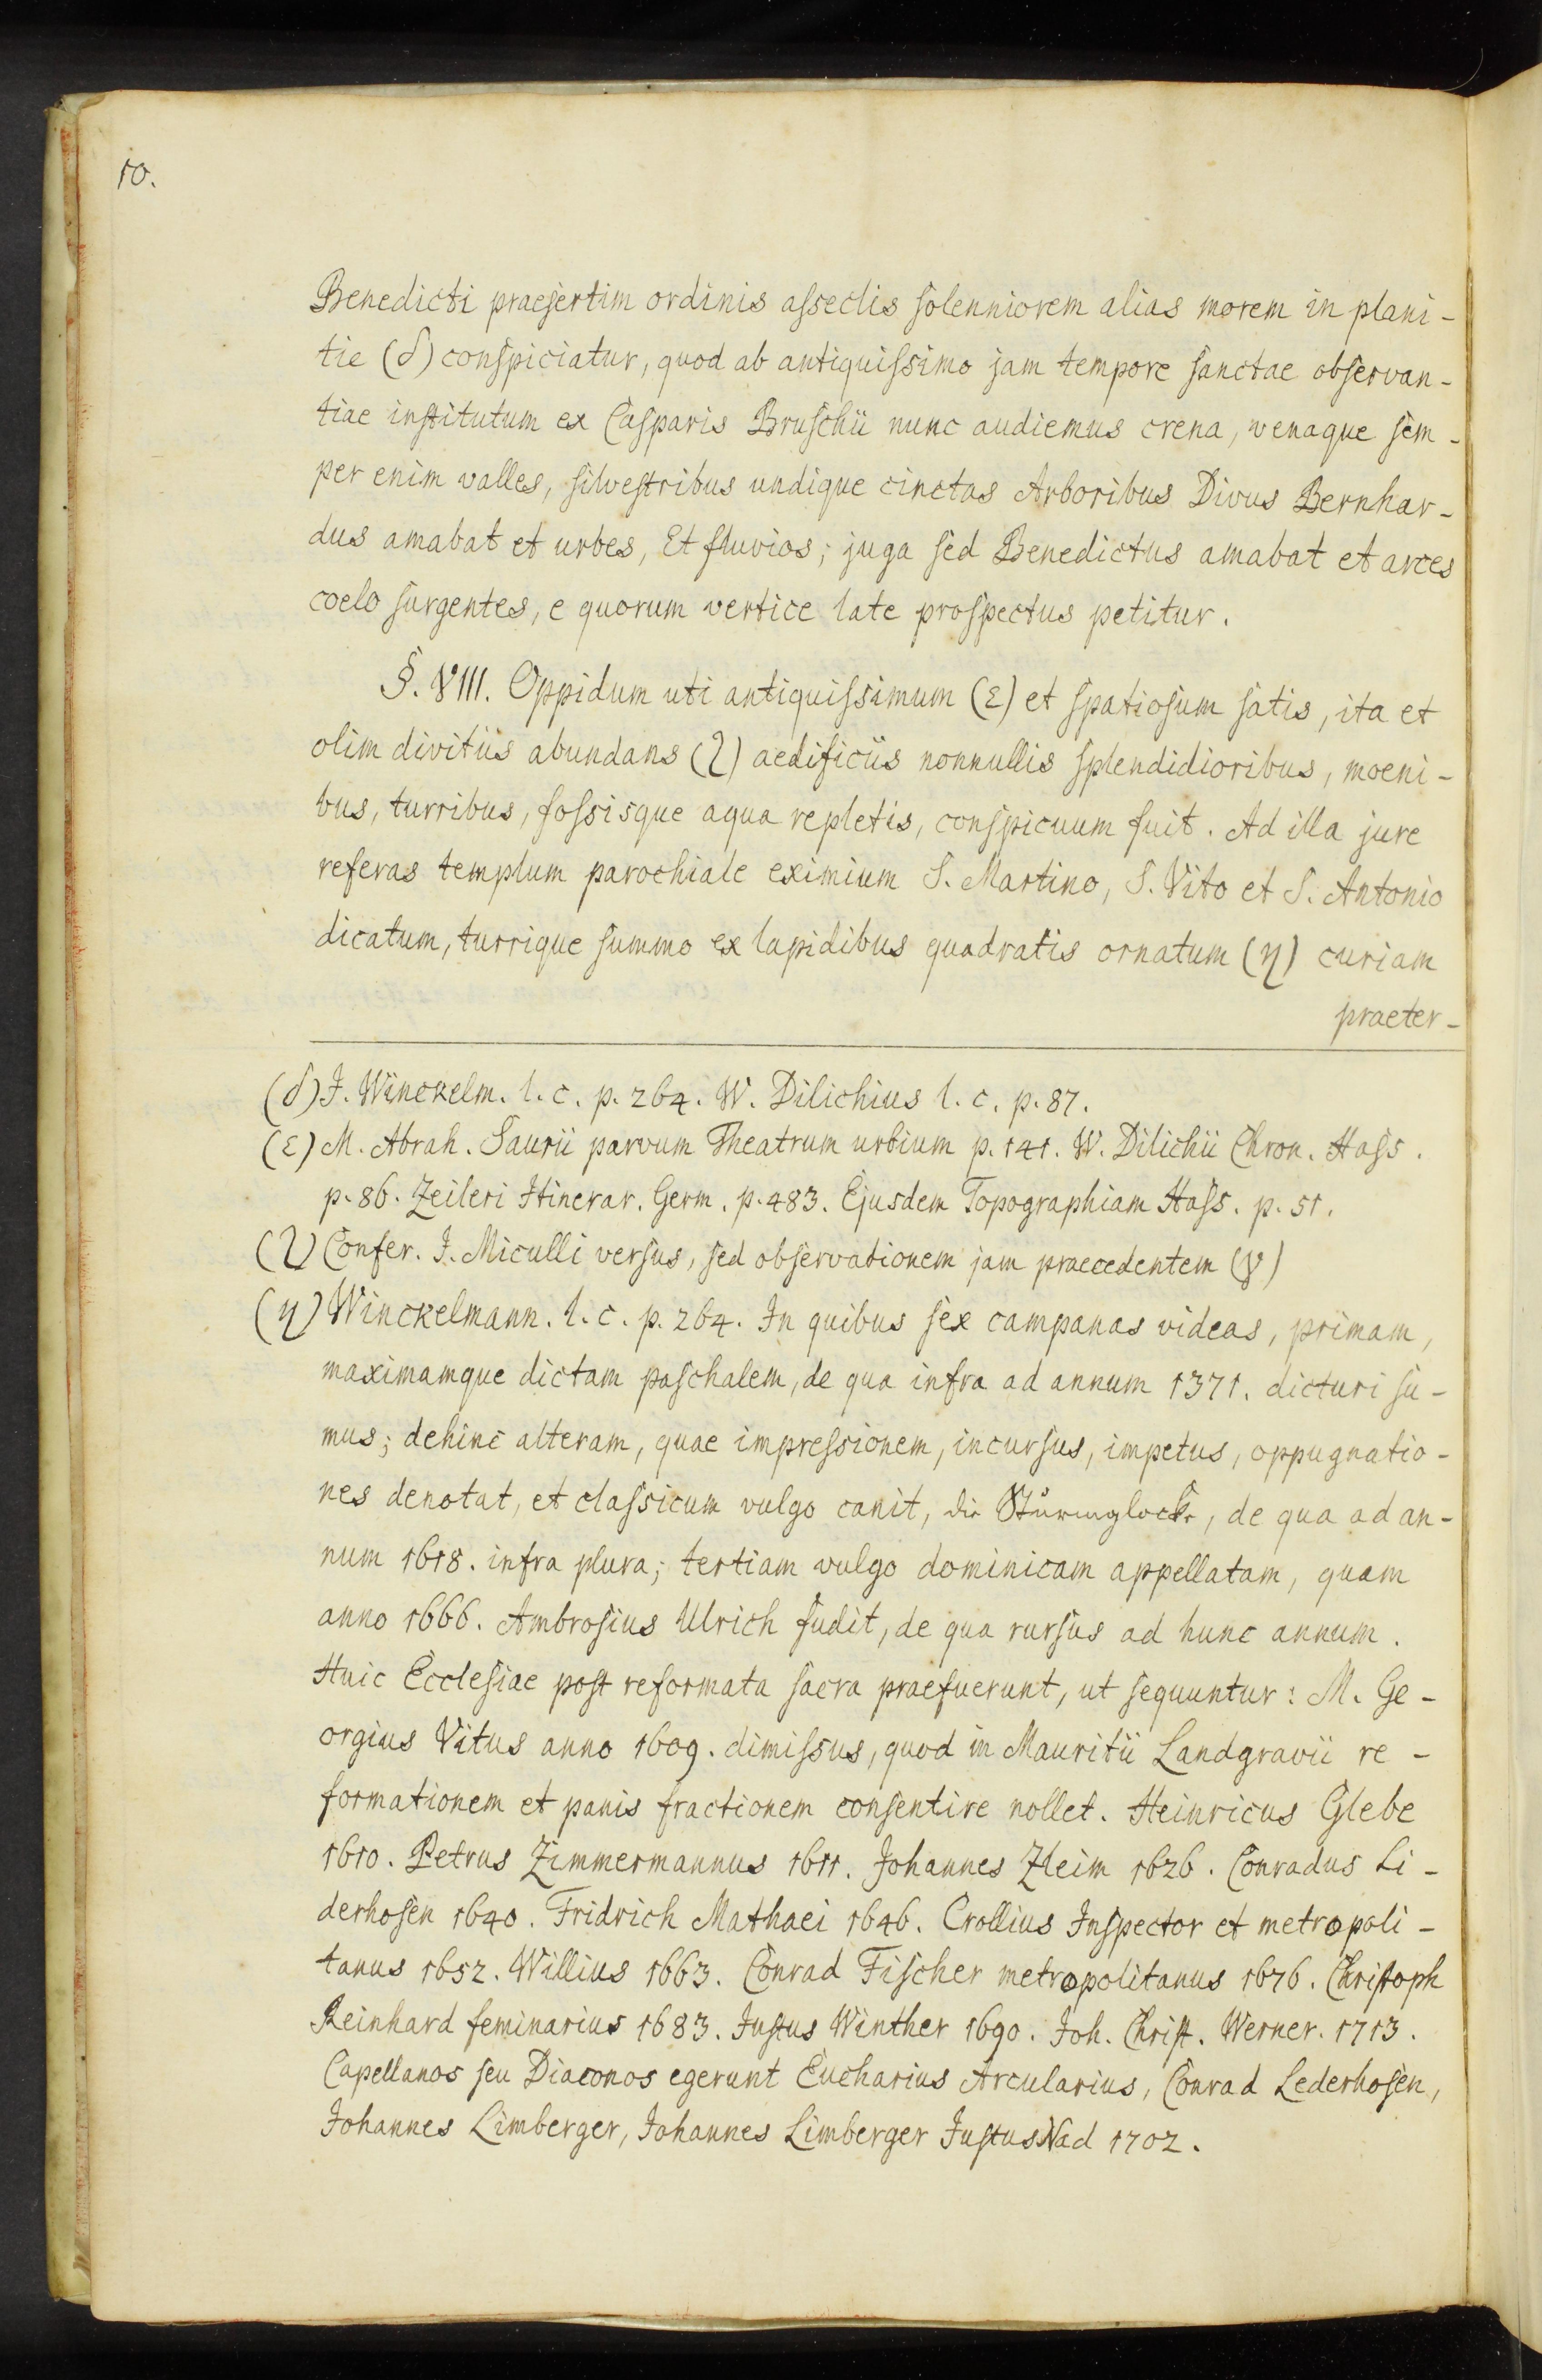 10.
Benedicti praesertim ordinis asseclis solenniorem alias morem in plani-
tie (δ) conspiciatur, quod ab antiquissimo jam tempore sanctae observan-
tiae institutum ex Casparis Bruschii nunc audiemus crena, venaque sem-
per enim valles, silvestribus undique cinctas Arboribus Divus Bernhar-
dus amabat et urbes, Et fluvios; juga sed Benedictus amabat et arces
coelo surgentes, e quorum vertice late prospectus petitur.
§. VIII. Oppidum uti antiquissimum (ε) et spatiosum satis, ita et
olim divitiis abundans (ζ) aedificiis nonnullis splendidioribus, moeni-
bus, turribus, fossisque aqua repletis, conspicuum fuit. Ad illa jure
referas templum parochiale eximium S. Martino, S. Vito et S. Antonio
dicatum, turrique summo ex lapidibus quadratis ornatum (η) curiam
praeter-
(δ) J. Winckelm. l. c. p. 264. W. Dilichius l. c. p. 87.
(ε) M. Abrah. Saurii parvum Theatrum urbium p. 141. W. Dilichii Chron. Hass.
p. 86. Zeileri Itinerar. Germ. p. 483. Ejusdem Topographiam Hass. p. 51.
(ζ) Confer. J. Miculli versus, sed observationem jam praecedentem (γ)
(η) Winckelmann. l. c. p. 264. In quibus sex campanas videas, primam,
maximamque dictam paschalem, de qua infra ad annum 1371. dicturi su-
mus; dehinc alteram, quae impressionem, incursus, impetus, oppugnatio-
nes denotat, et classicum vulgo canit, die Sturmglocke, de qua ad an-
num 1618. infra plura; tertiam vulgo dominicam appellatam, quam
anno 1666. Ambrosius Ulrich fudit, de qua rursus ad hunc annum.
Huic Ecclesiae post reformata sacra praefuerunt, ut sequuntur: M. Ge-
orgius Vitus anno 1609. dimissus, quod in Mauritii Landgravii re-
formationem et panis fractionem consentire nollet. Heinricus Glebe
1610. Petrus Zimmermannus 1611. Johannes Zleim 1626. Conradus Li-
derhosen 1640. Fridrich Mathaei 1646. Crollius Inspector et metropoli-
tanus 1652. Willius 1663. Conrad Fischer metropolitanus 1676. Christoph
Reinhard feminarius 1683. Justus Winther 1690. Joh. Christ. Werner. 1713.
Capellanos seu Diaconos egerunt Eucharius Arcularius, Conrad Lederhosen,
Johannes Limberger, Johannes Limberger Justus Nad 1702.